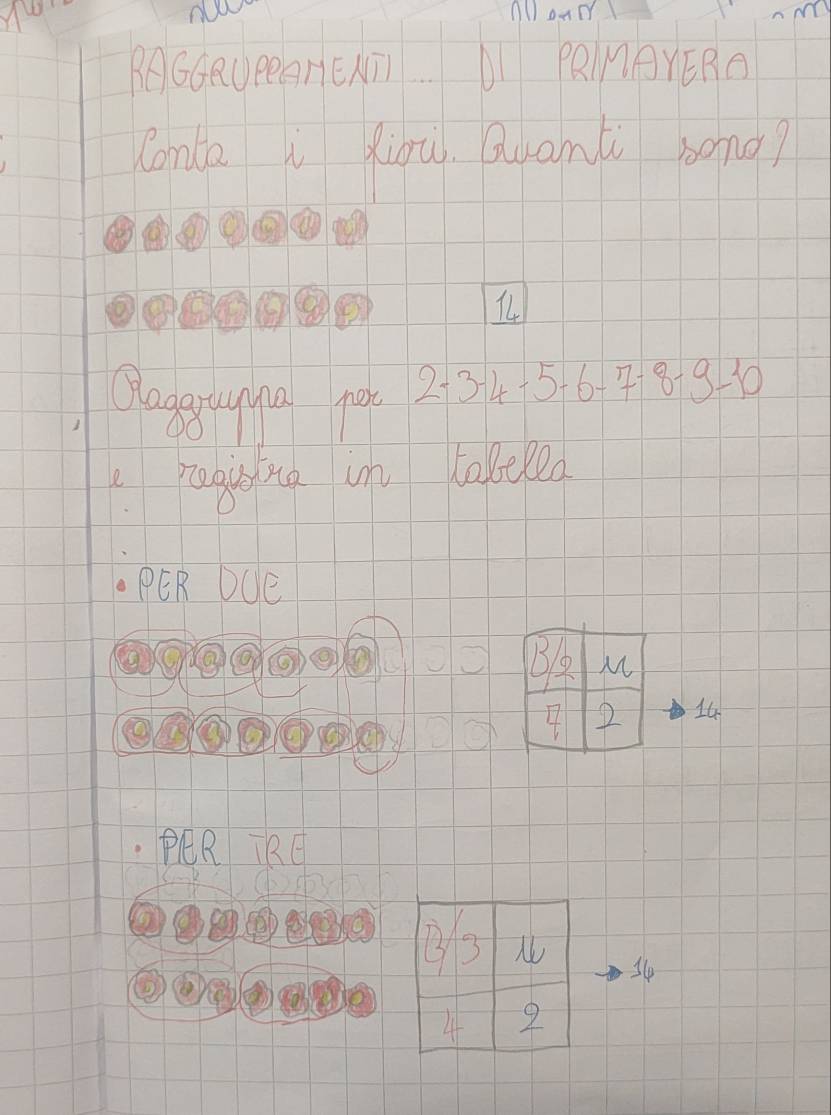 RAGGRUPPAMENTI ... DI PRIMAVERA
Conta i fiori. Quanti sono?
14
Raggruppa per 2-3-4-5-6-7-8-9-10
e registra in tabella
• PER DUE
B/2 u
7 2 → 14
• PER TRE
B/3 u
4 2 → 14